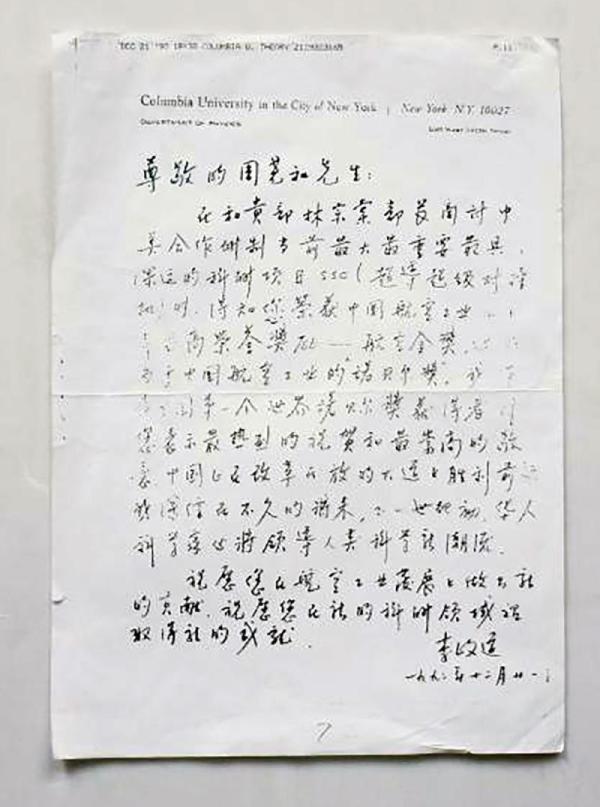 DEC 21 '92 18:30 COLUMBIA U. THEORY
P.1
Columbia University in the City of New York | New York, N.Y. 10027
DEPARTMENT OF PHYSICS
尊敬的周 和先生:
在和贵部林宗棠部长商讨中
美合作研制当前最大最重要最具
深远的科研项目SSC(超 超级对
机)时,得知您荣获中国航空工业
高荣誉奖励——航空金奖,
中国航空工业的诺贝尔奖,
第一个 诺贝尔奖获得者
您表示最热烈的祝贺和最崇高的敬
意。中国正在改革开放的大道上胜利前
我深信在不久的将来, 世纪初,华人
科学家必将领导人类科学新潮流。
祝愿您在航空工业发展上做出新
的贡献,祝愿您在新的科研领域
取得新的成就。
李政道
一九九二年十二月廿一
7